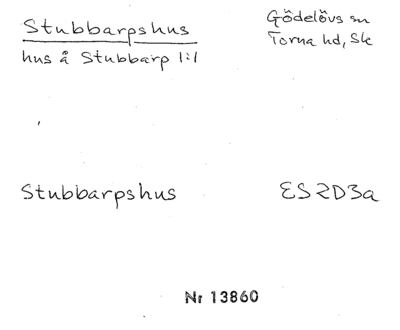 Stubbarpshus
Gödelövs sn
hus å Stubbarp 1:1
Torna hd, Sk
Stubbarpshus
ES 2D3a
Nr 13860